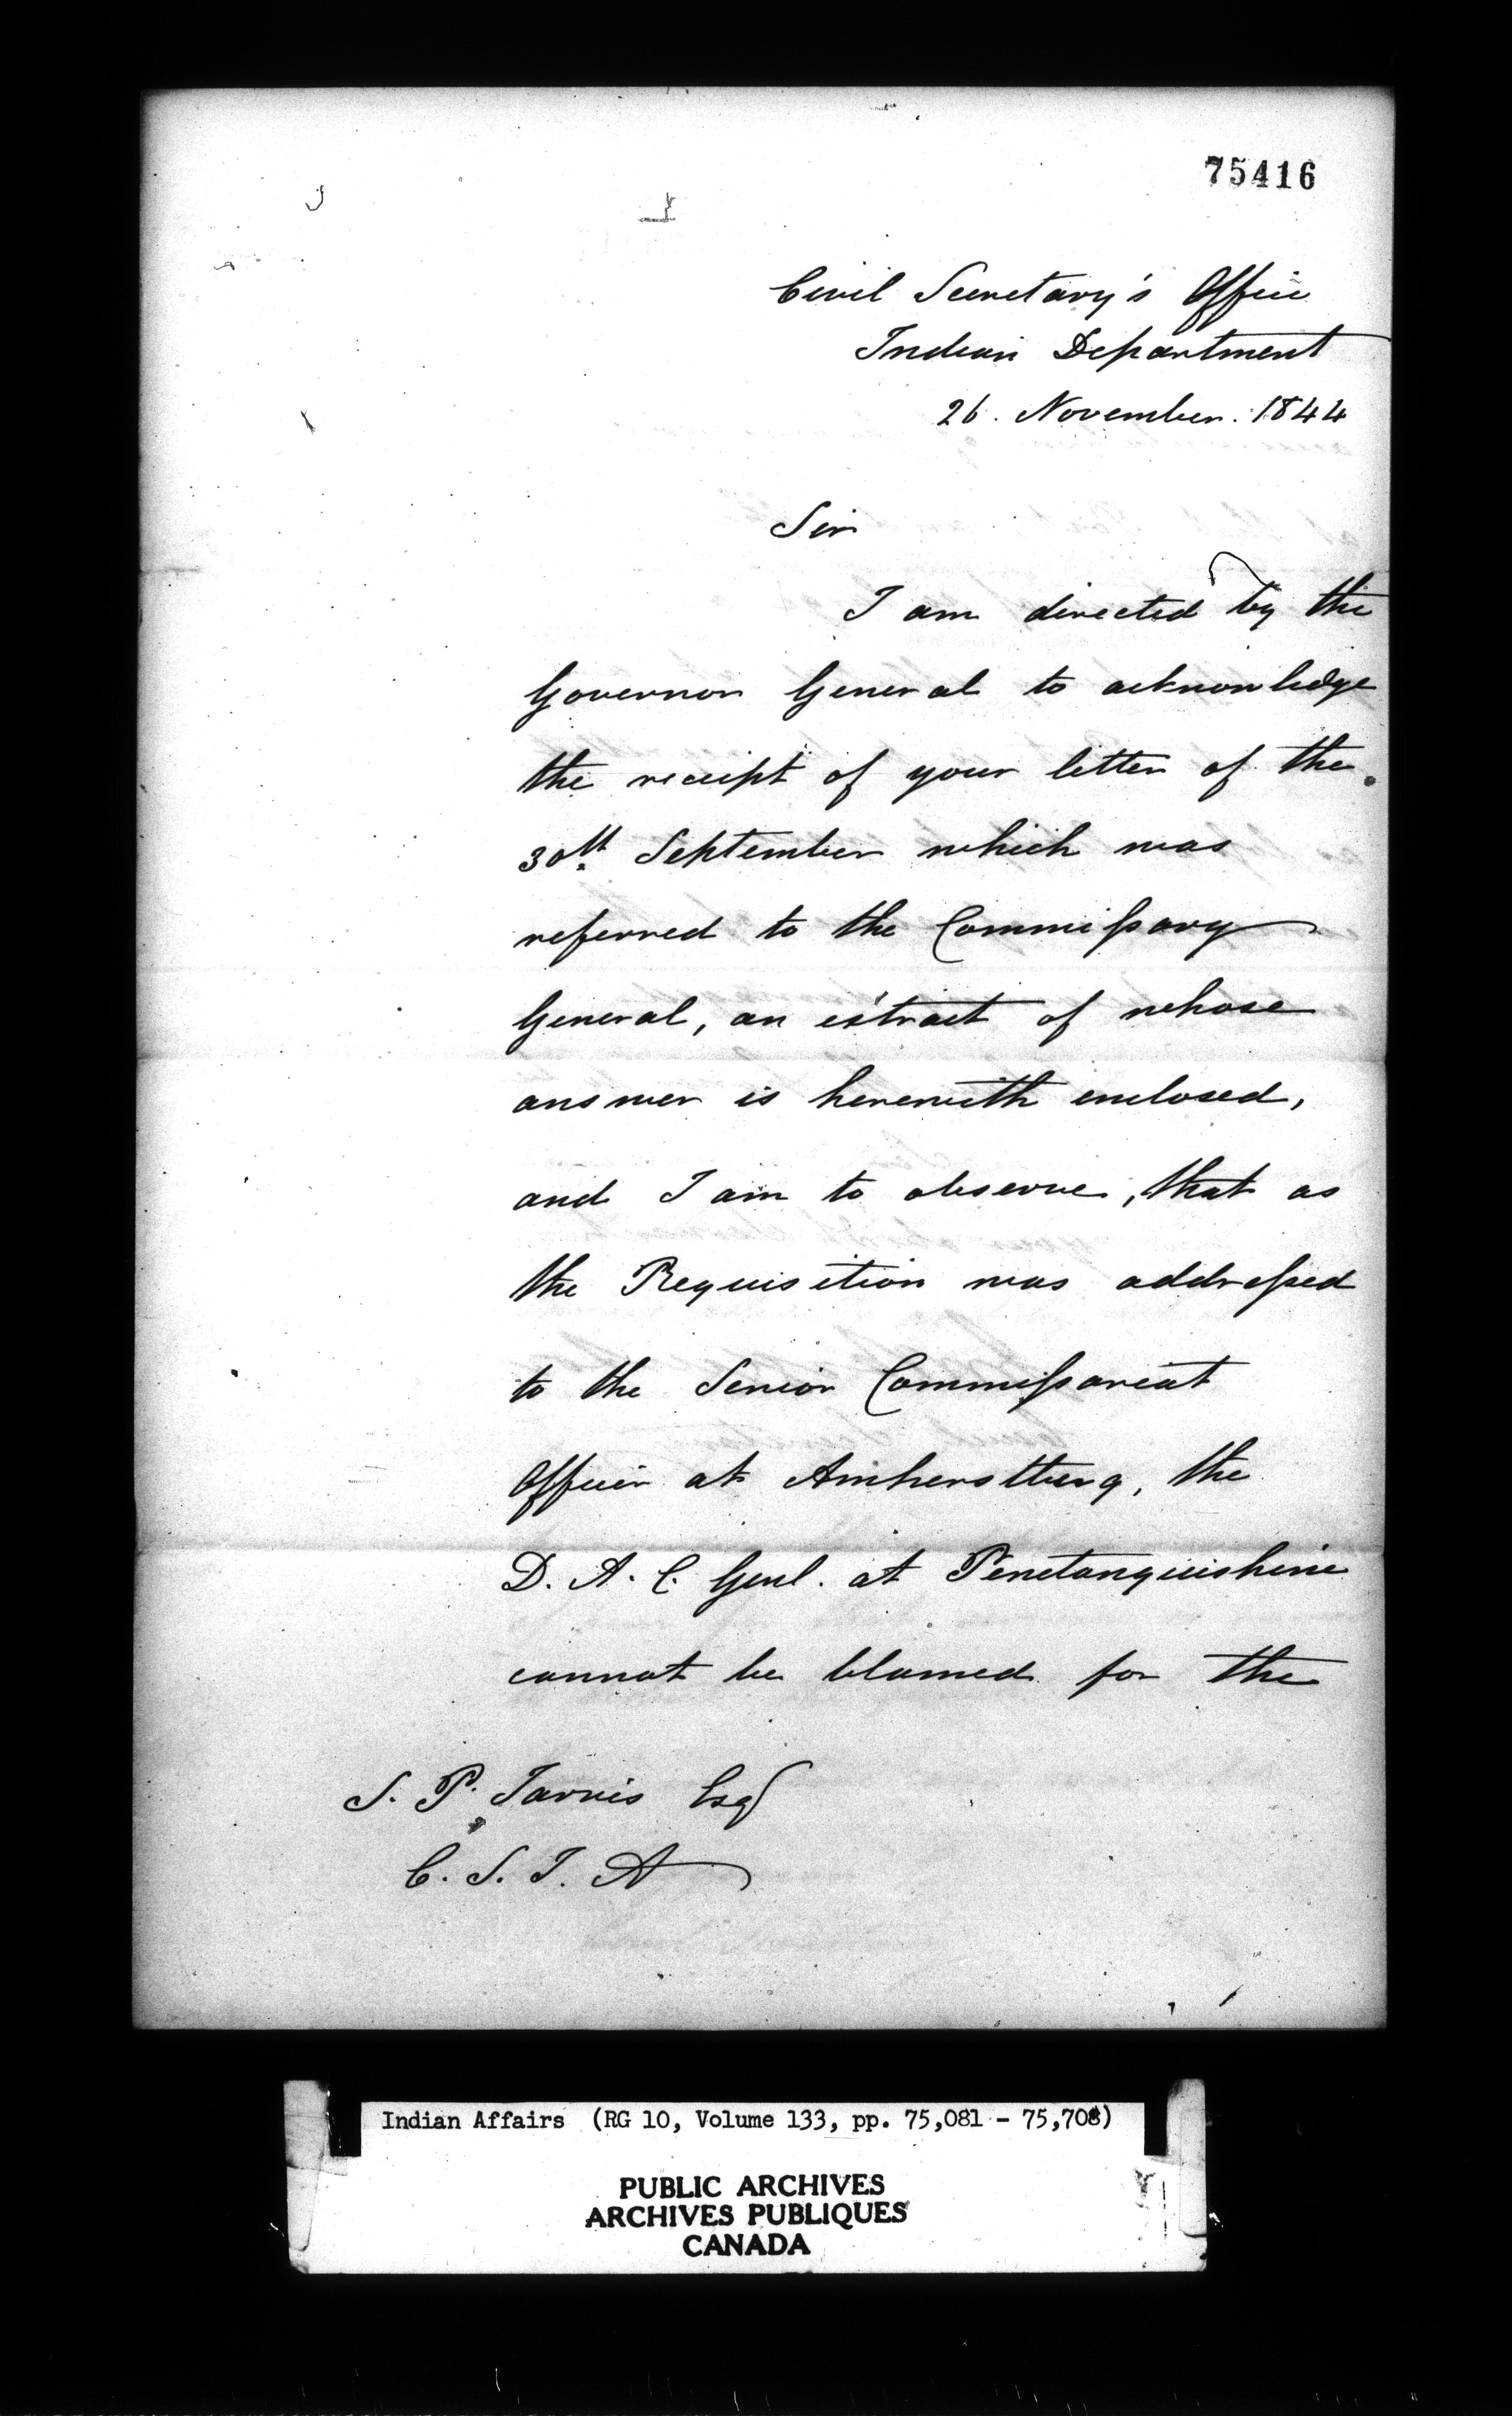 75416
Civil Secretary's Office
Indian Department
26. November. 1844
Sir
I am directed by the
Governor General to acknowledge
the receipt of your letter of the
30th September which was
referred to the Commissary
General, an extract of whose
answer is herewith enclosed,
and I am to observe, that as
the Requisition was addressed
to the Senior Commissariat
Officer at Amherstburg, the
D. A. C. Genl. at Penetanguishine
cannot be blamed for the
S. P. Jarvis Esq
C. S. I. A
Indian Affairs (RG 10, Volume 133, pp. 75,081 - 75,708)
PUBLIC ARCHIVES
ARCHIVES PUBLIQUES
CANADA